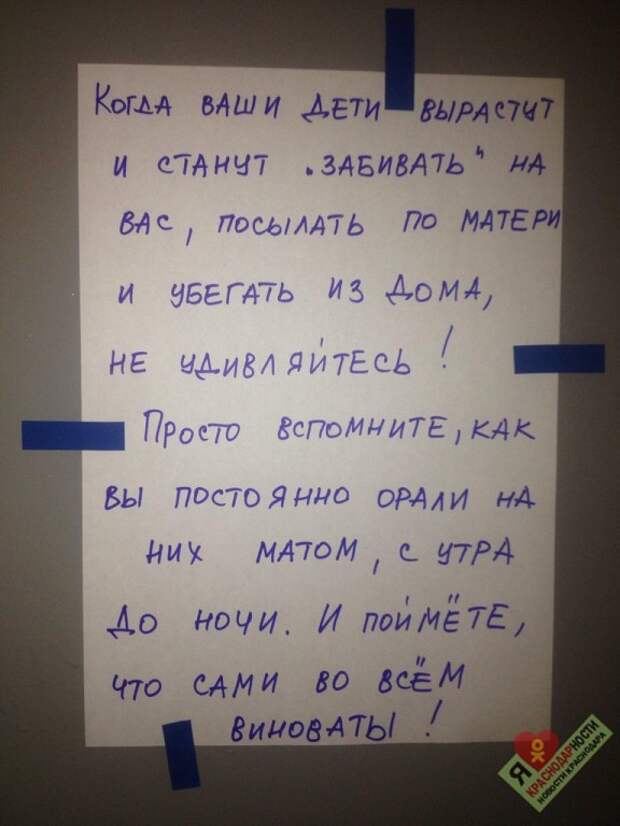 Когда ваши дети вырастут
и станут "забивать" на
вас, посылать по матери
и убегать из дома,
не удивляйтесь!
Просто вспомните, как
вы постоянно орали на
них матом, с утра
до ночи. И поймёте,
что сами во всём
виноваты!
Я
КРАСНОДАРНОСТИ
НОВОСТИ КРАСНОДАРА